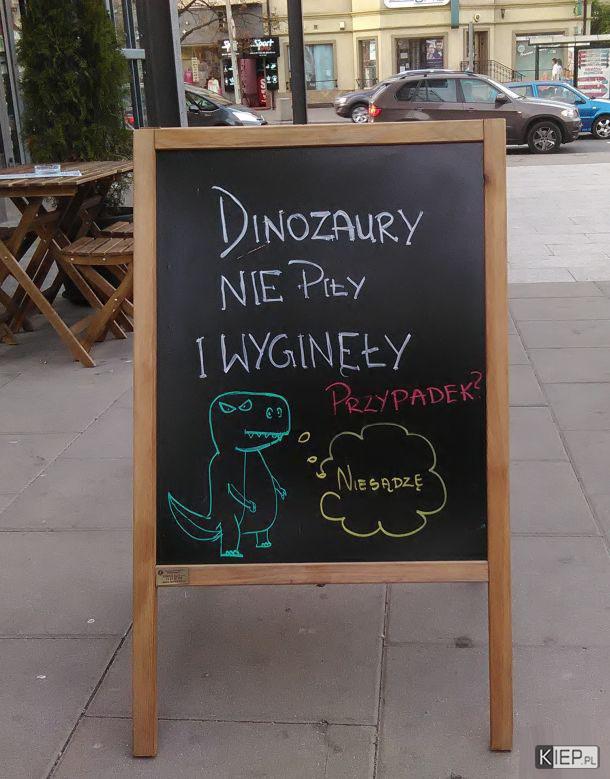 Sport
DINOZAURY
NIE PIŁY
I WYGINĘŁY
PRZYPADEK?
NIESĄDZĘ
KIEP.PL